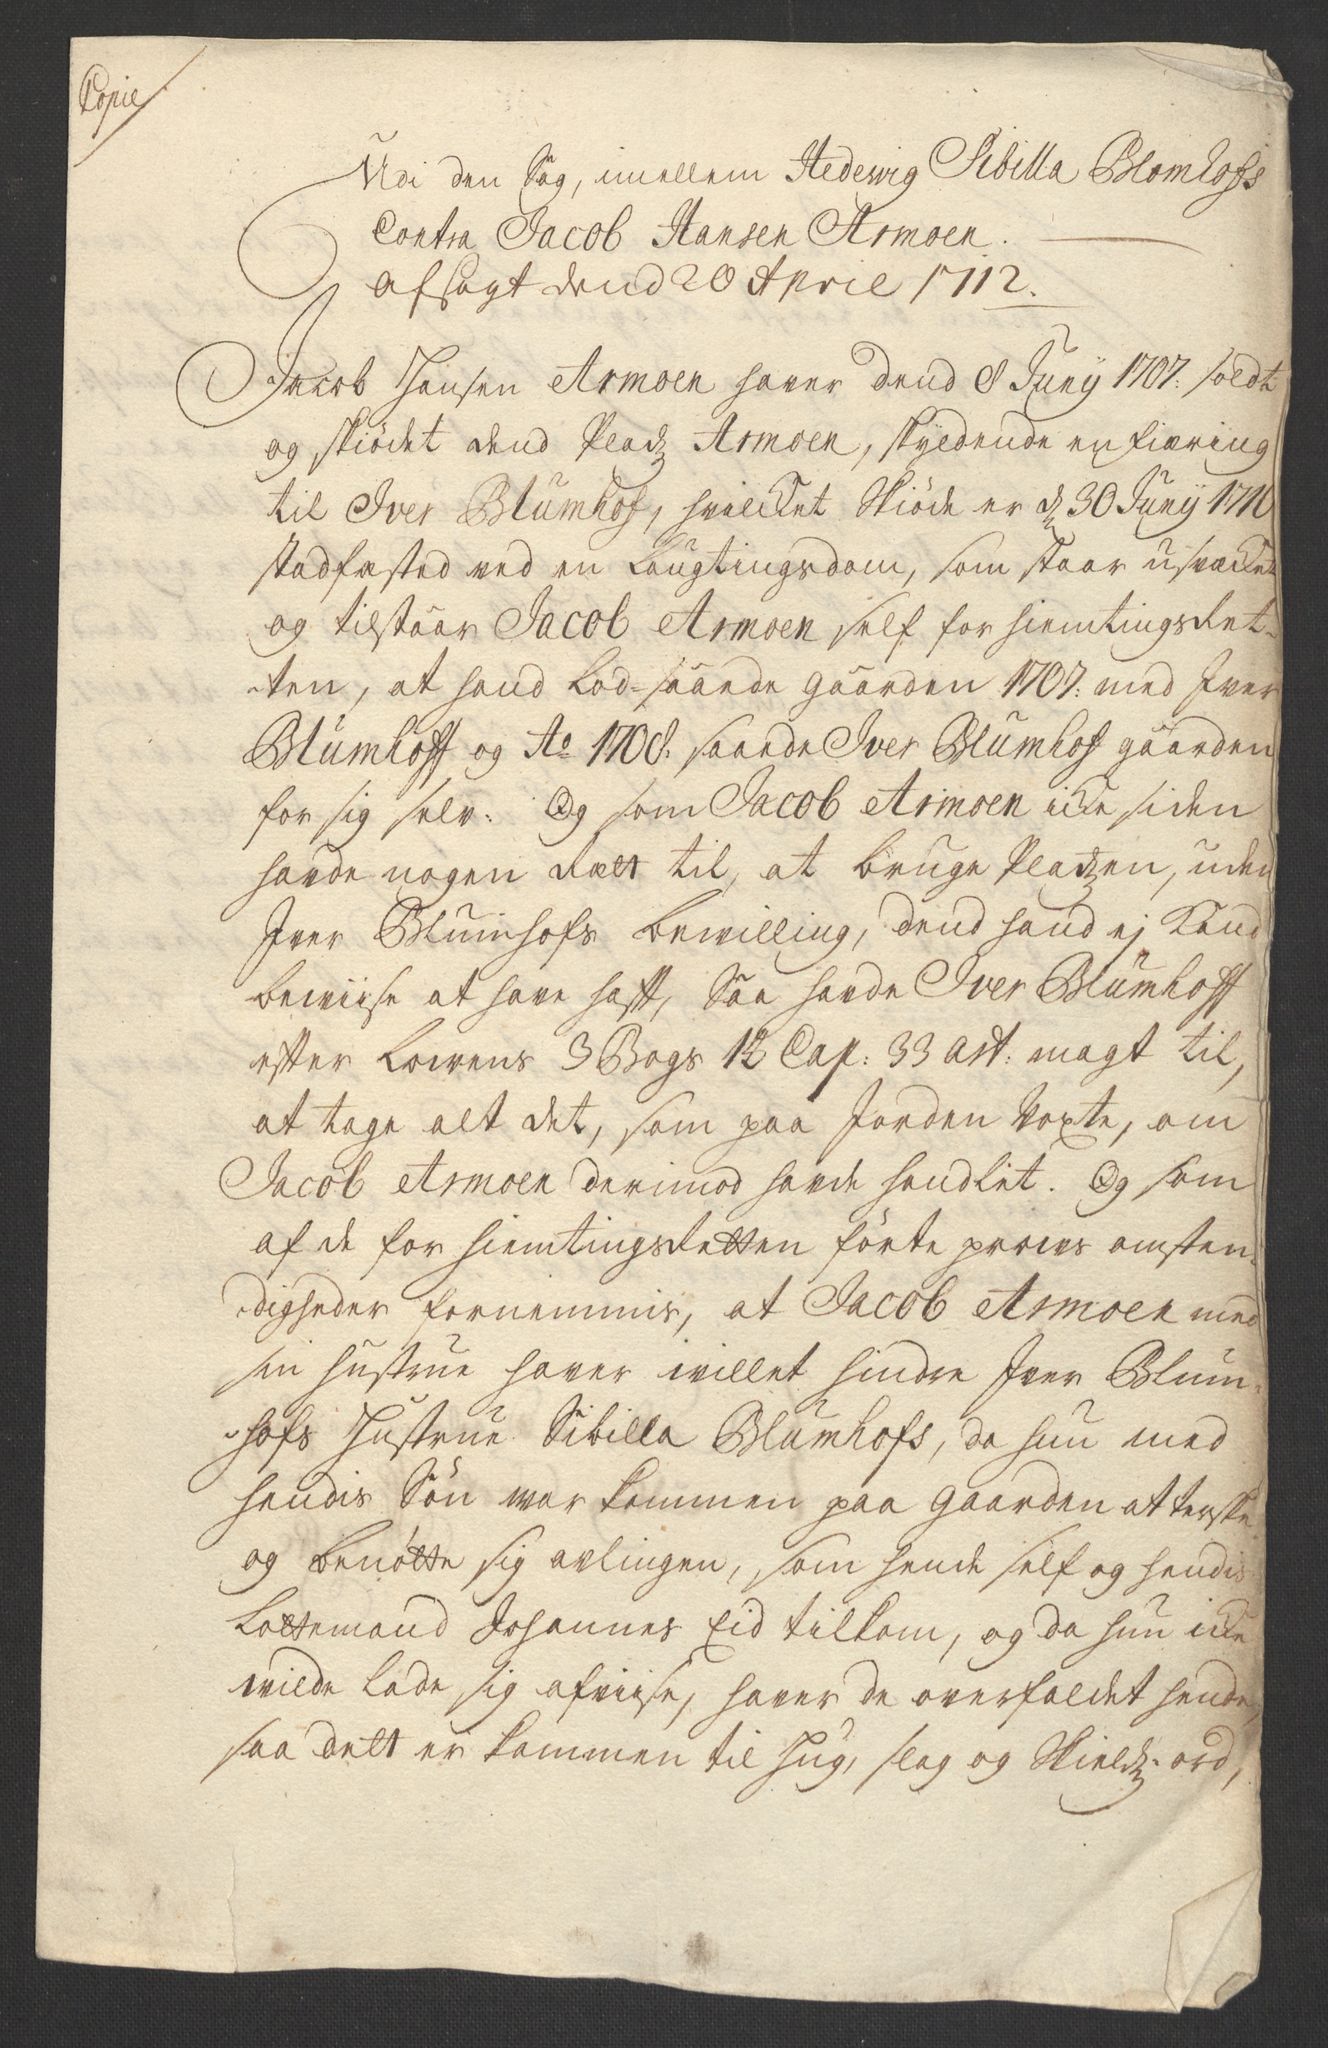 Copie
Udi den Sag, imellem Hedewig Sibilla Blomhofs
Contra Jacob Hansen Armoen.
afsagt dend 20 April 1712.
Jacob Hansen Armoen haver dend 8 Juny 1707: soldt
og skiödet dend Pladz Armoen, skyldende en fiering
til Iver Blumhof, hvilcket Skiöde er dz 30 Juny 1710
stadfæsted ved en Laugtingsdom, som staar usvæcket
og tilstaar Jacob Armoen self for hiemtingsRet-
-ten, at hand Lod-saaede gaarden 1707: med Iver
Blumhoff og Ao 1708. saaede Iver Blumhof gaarden
for sig selv. Og som Jacob Armoen icke siden
hafde nogen Rett til, at bruge Pladzen, uden
Iver Blumhofs bewilling, dend hand ej Kand
bewiise at have haft, Saa hafde Iver Blumhoff
efter Lowens 3 Bogs 12 Cap: 33 Art: magt til,
at tage alt det, som paa Jorden Voxte, om
Jacob Armoen derimod hafde handlet. Og som
af de for hiemtingsRetten förte prowes omsten-
-digheder fornemmis, at Jacob Armoen med
sin hustrue haver willet hindre Iver Blum-
-hofs Hustrue Sibilla Blumhofs, da hun med
hendis Sön war kommen paa gaarden at terske
og benøtte sig avlingen, som hende self og hendis
Lottemand Johannes Eid tilkom, og da hun icke
wilde lade sig afviise, haver de overfaldet hende,
saa dett er kommen til Hug, slag og Skieldz-ord,